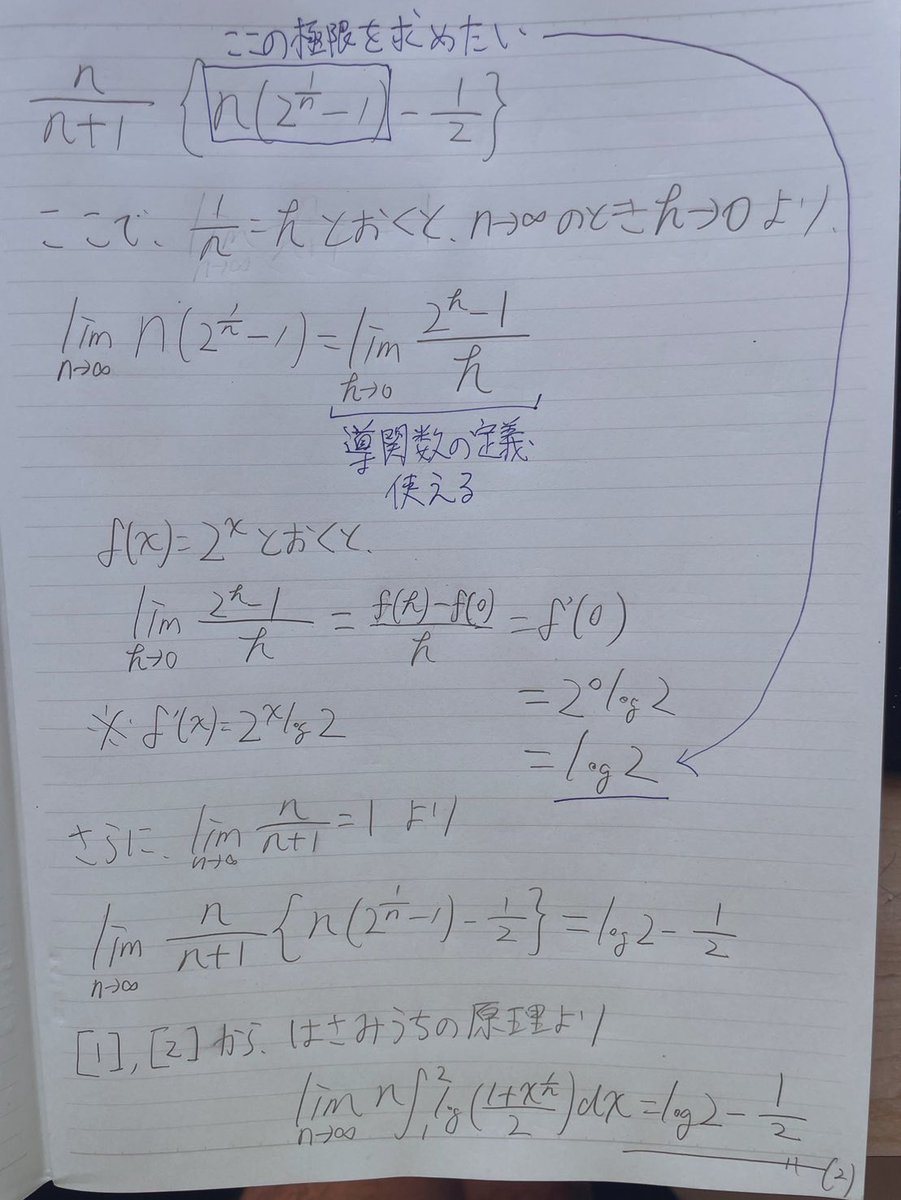 ここの極限を求めたい
n/(n+1) {n(2^{1/n}-1) - 1/2}
ここで、1/n = h とおくと、n→∞ のとき h→0 より、
lim_{n→∞} n(2^{1/n}-1) = lim_{h→0} (2^h-1)/h
導関数の定義
使える
f(x)=2^x とおくと、
lim_{h→0} (2^h-1)/h = (f(h)-f(0))/h = f'(0)
= 2^0 log 2
※ f'(x)=2^x log 2
= log 2
さらに、lim_{n→∞} n/(n+1) = 1 より
lim_{n→∞} n/(n+1) {n(2^{1/n}-1) - 1/2} = log 2 - 1/2
[1],[2]から、はさみうちの原理より
lim_{n→∞} n∫_1^2 log((1+x^{1/n})/2)dx = log 2 - 1/2
(2)